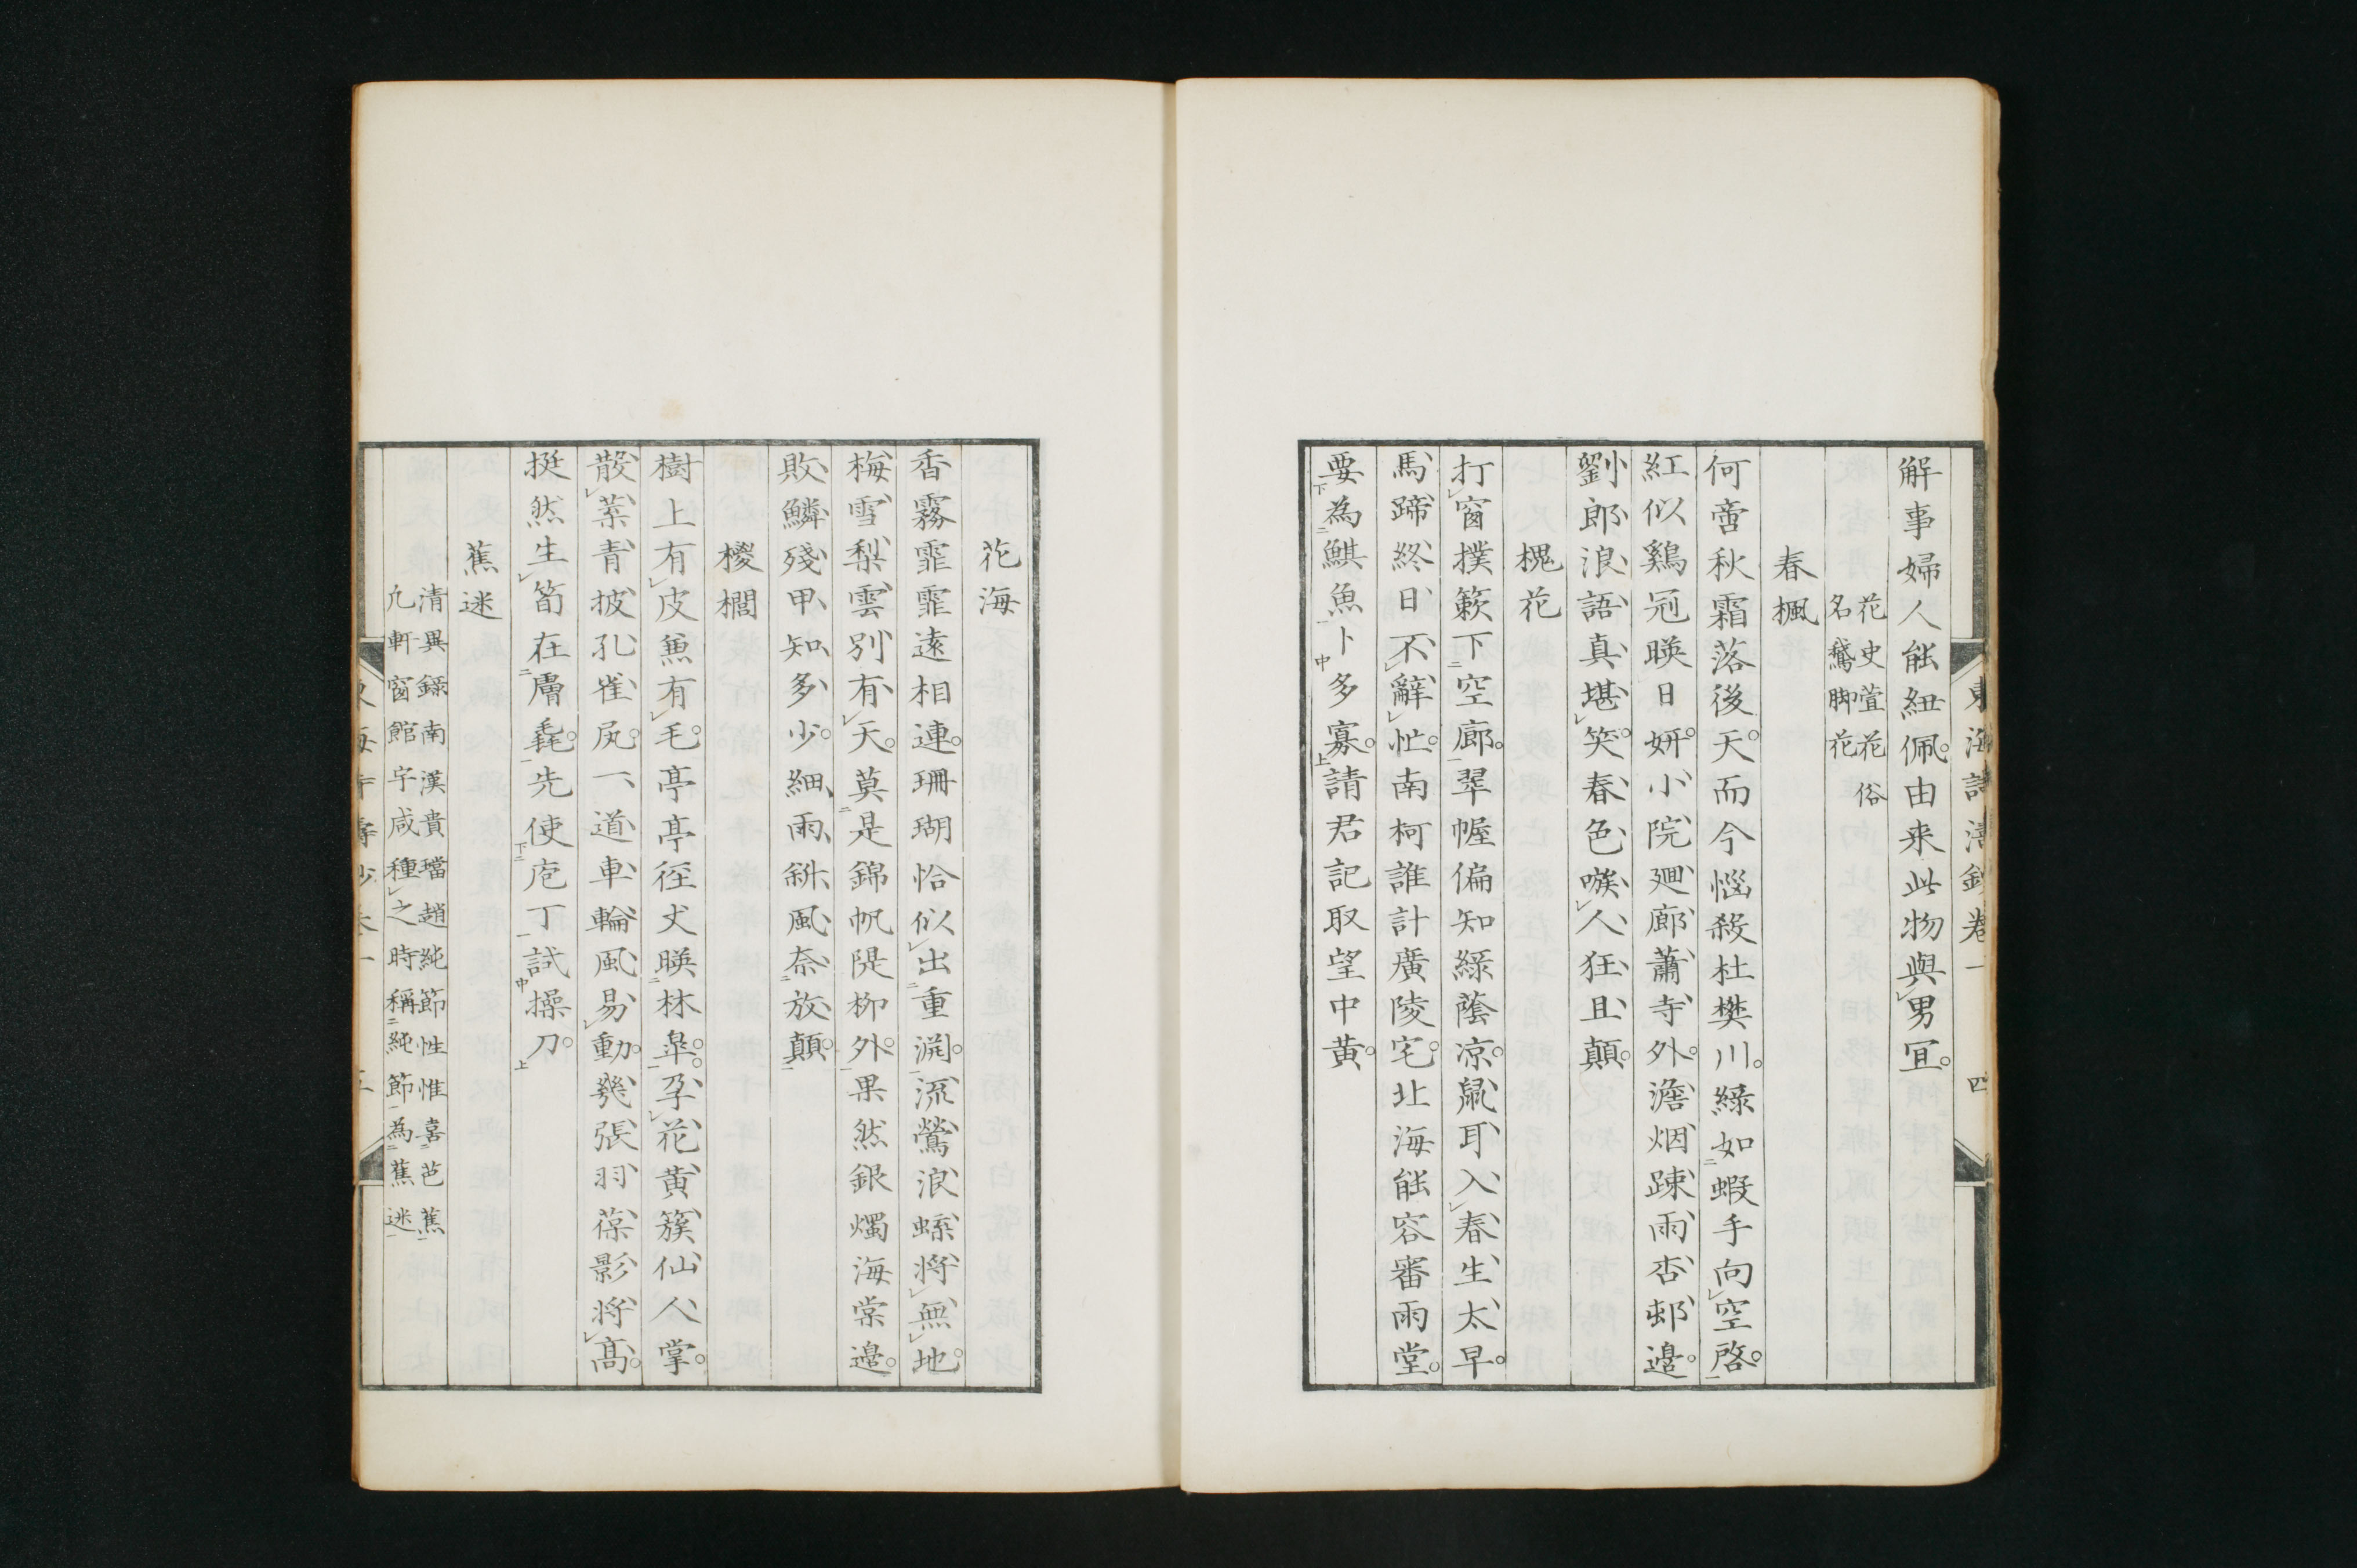 解事婦人能紐佩。由来此物與男宜。
花史萱花俗
名鵞脚花
春楓
何啻秋霜落後天。而今惱殺杜樊川。緑如蝦手向空啓。
紅似鷄冠暎日妍。小院廻廊蕭寺外。澹烟踈雨杏邨邉。
劉郎浪語真堪笑。春色嗾人狂且顛。
槐花
打窗撲簌下空廊。翠幄偏知緑蔭凉。鼠耳入春生太早。
馬蹄終日不辭忙。南柯誰計廣陵宅。北海能容審雨堂。
要為鯕魚卜多寡。請君記取望中黄。
東海詩濤鈔卷一
四
花海
香霧霏霏遠相連。珊瑚恰似出重渊。流鶯浪蝶將無地。
梅雪梨雲別有天。莫是錦帆隄柳外。果然銀燭海棠邉。
敗鱗殘甲知多少。細雨斜風奈放顛。
椶櫚
樹上有皮兼有毛。亭亭徑丈暎林皐。孕花黄簇仙人掌。
散葉青披孔雀尻。一道車輪風易動。幾張羽葆影將髙。
挺然生筍在膚毳。先使庖丁試操刀。
蕉迷
清異録南漢貴璫趙純節性惟喜芭蕉
凢軒窗館宇咸種之時稱純節為蕉迷